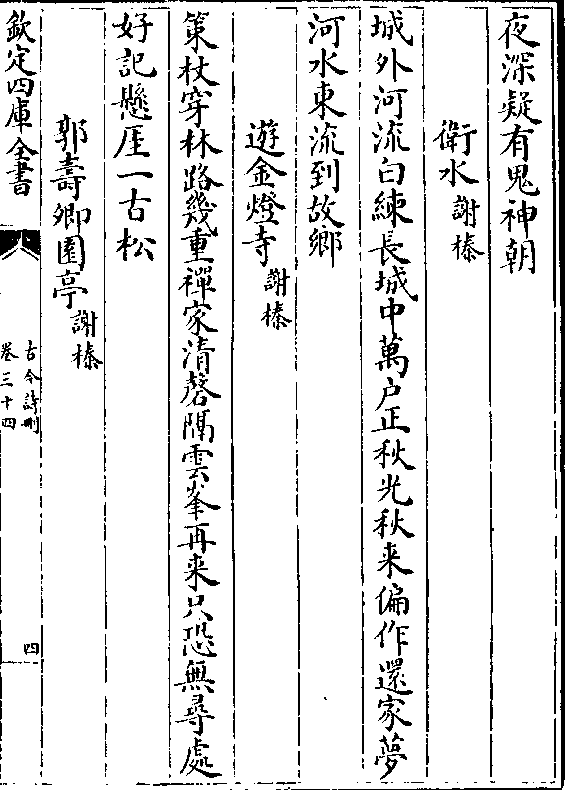 夜深疑有鬼神朝
衛水謝榛
城外河流白練長城中萬户正秋光秋来偏作還家夢
河水東流到故鄉
遊金燈寺謝榛
策杖穿林路幾重禪家清磬隔雲峯再来只恐無尋處
好記懸厓一古松
郭壽卿園亭謝榛
欽定四庫全書
古今詩刪
卷三十四
四